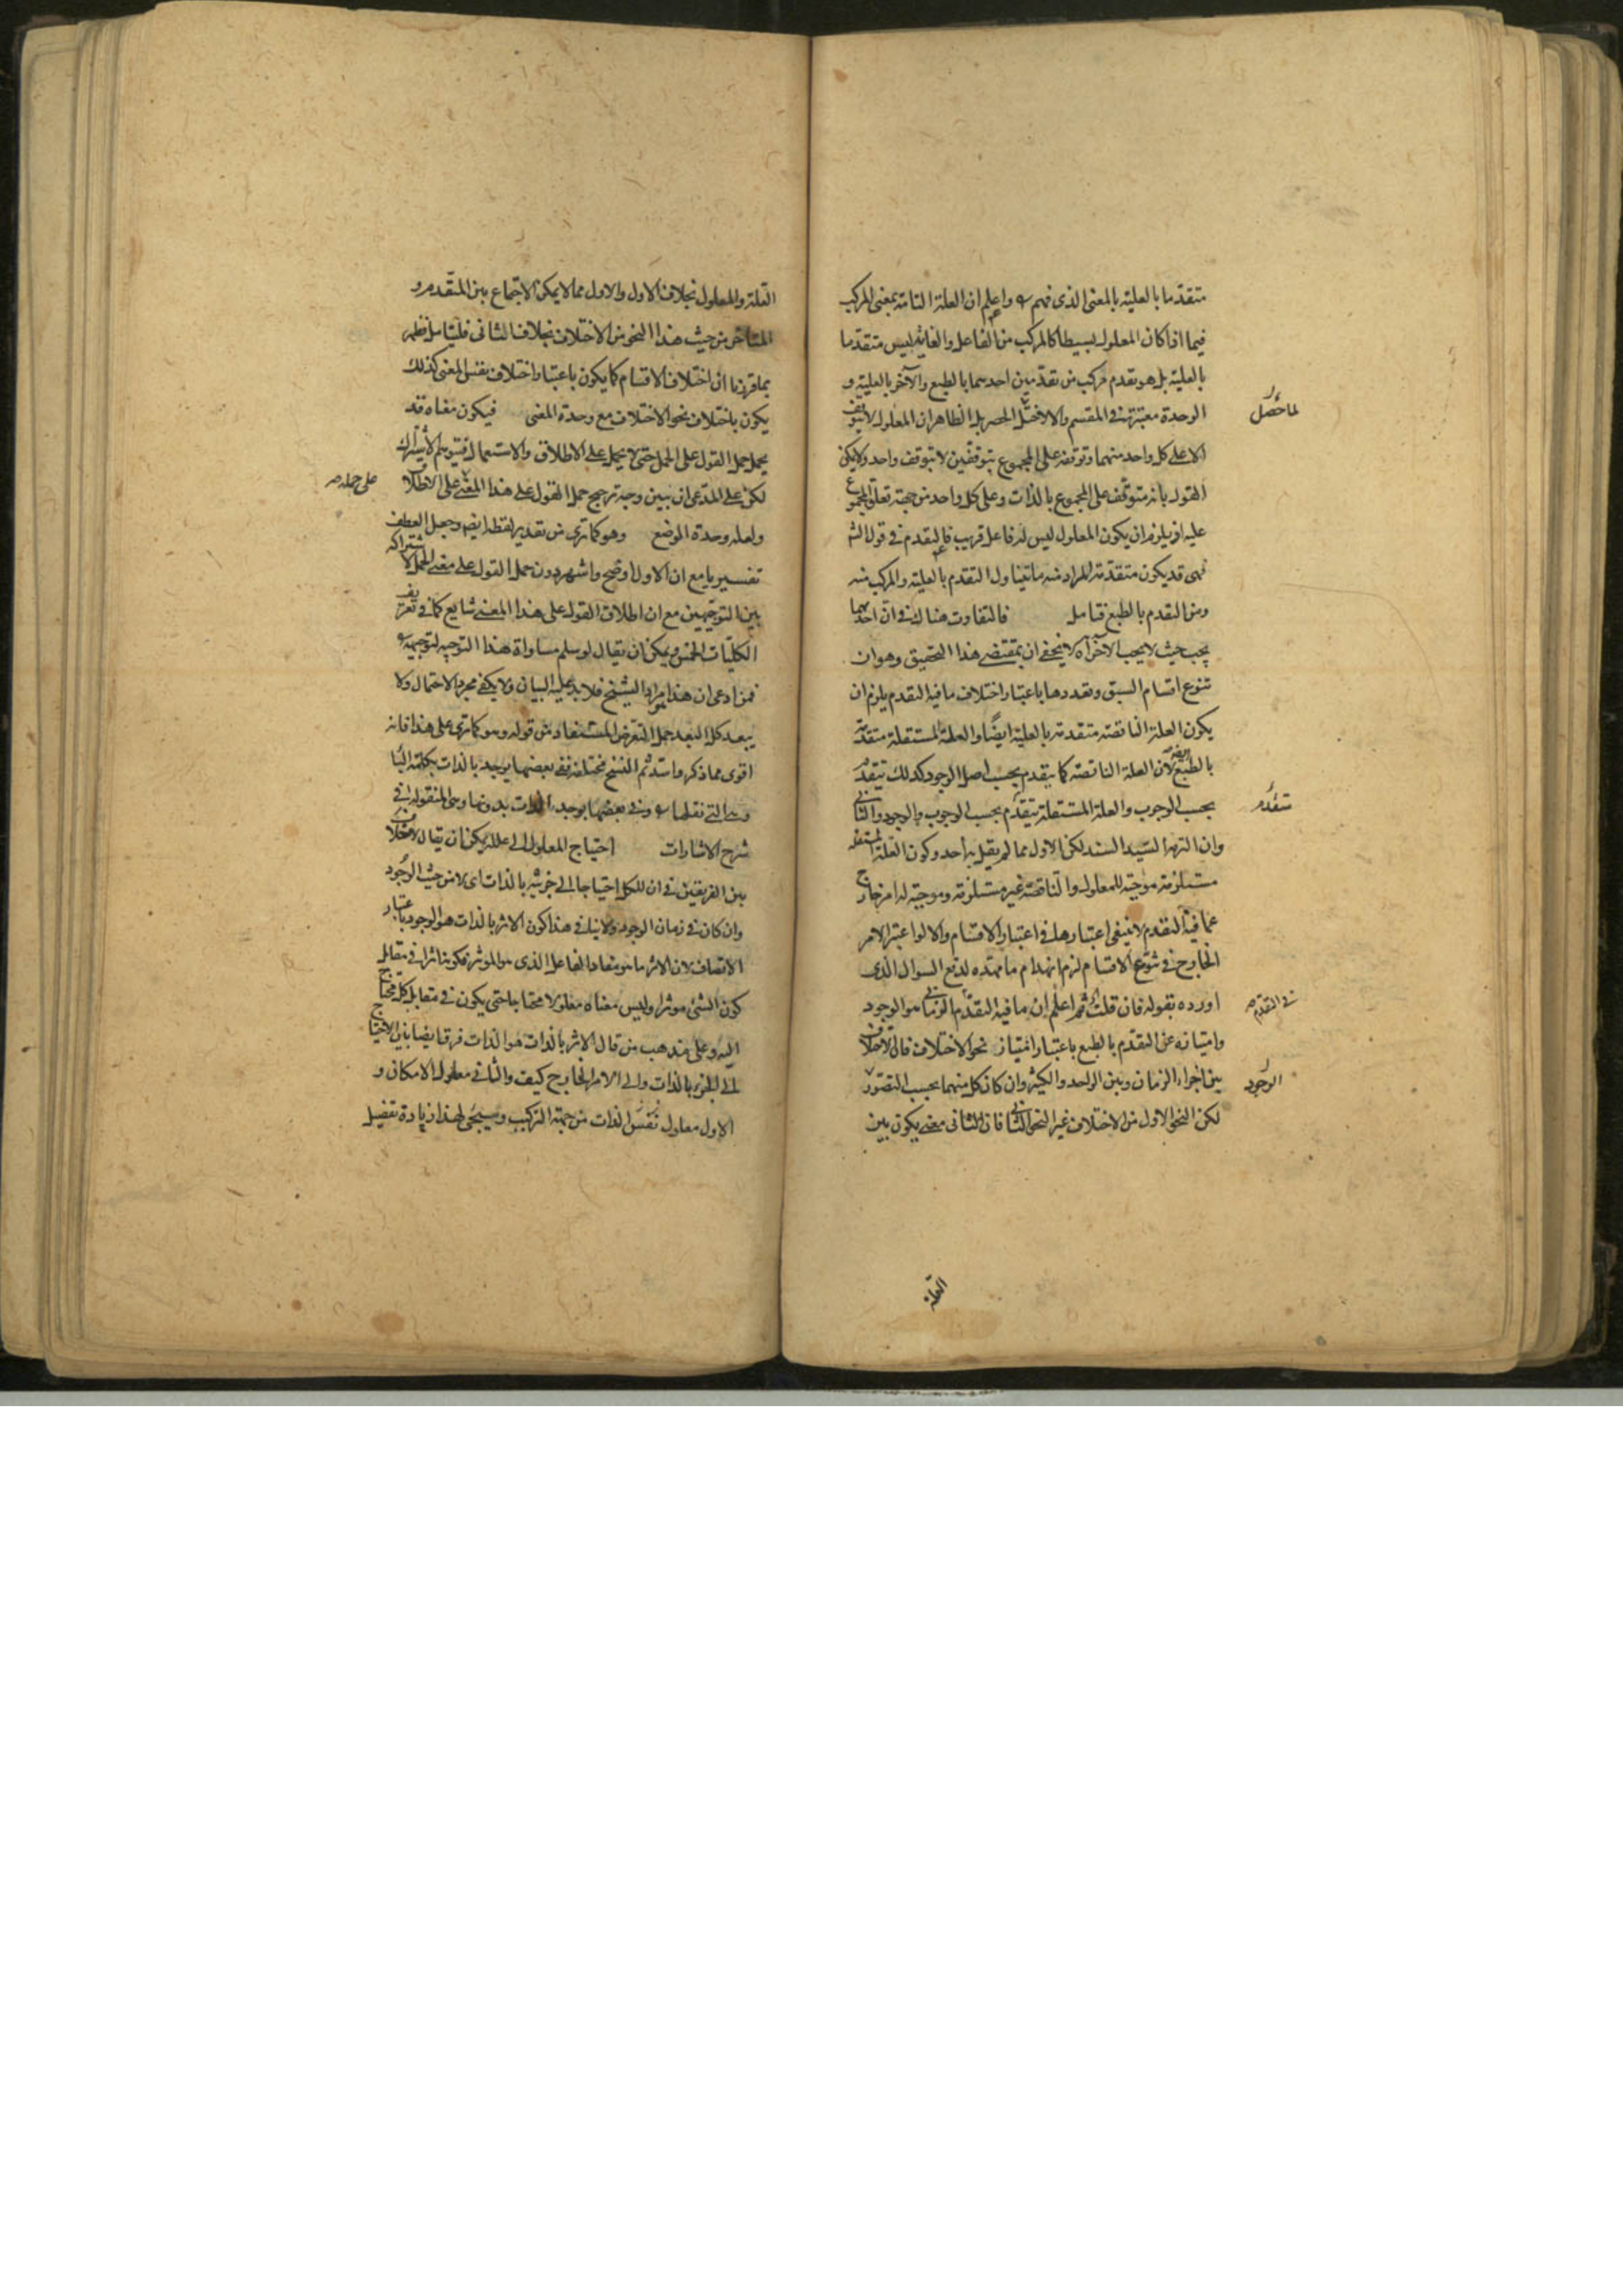 متقدما بالعلية بالمعنى الذى فهم واعلم ان العلة التامة بمعنى المركب
فيما اذا كان المعلول بسيطا كالمركب من الفاعل والغاية ليس متقدما
بالعلية بل هو تقدم مركب من تقدمين احدهما بالطبع والآخر بالعلية و
الوحدة معتبرة فى المقسم والا لاختل الحصر بل الظاهر ان المعلول لا يتوقف
الا على كل واحد منهما وتوقفه على المجموع بتوقفين لا بتوقف واحد ولا يمكن
القول بانه متوقف على المجموع بالذات وعلى كل واحد من جهة تعلق المجموع
عليه اذ يلزم ان يكون المعلول ليس له فاعل قريب فالتقدم فى قول الشم
فهى قد يكون متقدمة المراد منه ما يتناول التقدم بالعلية والمركب منه
ومن التقدم بالطبع فتامل فالتفاوت هناك فى ان احدهما
يجب حيث لا يجب الآخر آه لا يخفى ان بمقتضى هذا التحقيق وهو ان
تنوع اقسام السبق وتعددها باعتبار اختلاف ما فيه التقدم يلزم ان
يكون العلة الناقصة متقدمة بالعلية ايضا والعلة المستقلة متقدمة
بالطبع ايضا لان العلة الناقصة كما يتقدم بحسب اصل الوجود كذلك يتقدم
بحسب الوجوب والعلة المستقلة يتقدم بحسب الوجوب والوجود والثانى
وان التزمه السيد السند لكن الاول مما لم يقل به احد وكون العلة المستقلة
مستلزمة موجبة للمعلول والناقصة غير مستلزمة وموجبة له امر خارج
عما فيه التقدم لا ينبغى اعتبارها فى اعتبار الاقسام والا لو اعتبر الامر
الخارج فى تنوع الاقسام لزم انهدام ما مهده لدفع السوال الذى
اورده بقوله فان قلت ثم اعلم ان ما فيه التقدم الزمانى هو الوجود
وامتيازه عن التقدم بالطبع باعتبار امتياز نحو الاختلاف فان الاختلاف
بين اجزاء الزمان وبين الواحد والكثير وان كان كل منهما بحسب التصور
لكن النحو الاول من الاختلاف غير النحو الثانى فان للثانى معنى يكون بين
لما حصل
تقدم
فى التقدم
الوجود
العلة
العلة والمعلول بخلاف الاول والاول مما لا يمكن الاجتماع بين المتقدم و
المتاخر من حيث هذا النحو من الاختلاف بخلاف الثانى فليتامل فظهر
بما قررنا ان اختلاف الاقسام كما يكون باعتبار اختلاف نفس المعنى كذلك
يكون باختلاف نحو الاختلاف مع وحدة المعنى فيكون معناه قد
يحمل حمل القول على الحمل حتى لا يحمل على الاطلاق والاستعمال فيتوهم الاشتراك
لكن على المدعى ان يبين وجه ترجيح حمل القول على هذا المعنى على الاطلاق
ولعله وحدة الموضع وهو كما ترى من تقدير لفظ ايض وجعل العطف
تفسيريا مع ان الاول اوضح واشهر دون حمل القول على معنى الحمل لاشتراكه
بين التوجيهين مع ان اطلاق القول على هذا المعنى شايع كما فى تعريف
الكليات الخمس ويمكن ان يقال لو سلم مساواة هذا التوجيه لتوجيهه
فمن ادعى ان هذا مراد الشيخ فلا بد عليه البيان ولا يكفى مجرد الاحتمال ولا
يبعد كل البعد حمل التعرض المستفاد من قوله وهو كما ترى على هذا فانه
اقوى مما ذكر واشد ثم النسخ مختلفة ففى بعضها يوجد بالذات بكلمة البا
وهى التى نقلها وفى بعضها يوجد الذات بدونها وهى المنقولة فى
شرح الاشارات احتياج المعلول الى علله يمكن ان يقال لا خلاف
بين الفريقين فى ان للكل احتياجا الى جزئيه بالذات اى لا من حيث الوجود
وان كان فى زمان الوجود ولا ينافى هذا كون الاثر بالذات هو الوجود باعتبار
الاتصاف لان الاثر ما هو مفاد الفاعل الذى هو الموثر فكونه اثرا فى مقابل
كون الشئ موثرا وليس معناه معلولا محتاجا حتى يكون فى مقابل كل محتاج
اليه وعلى مذهب من قال الاثر بالذات هو الذات فرق ايضا بين الاحتياج
الى الجزء بالذات والى الامر الخارج كيف والثانى معلول الامكان و
الاول معلول نفس الذات من جهة التركيب وسيجئ لهذا زيادة تفصيل
على حمله